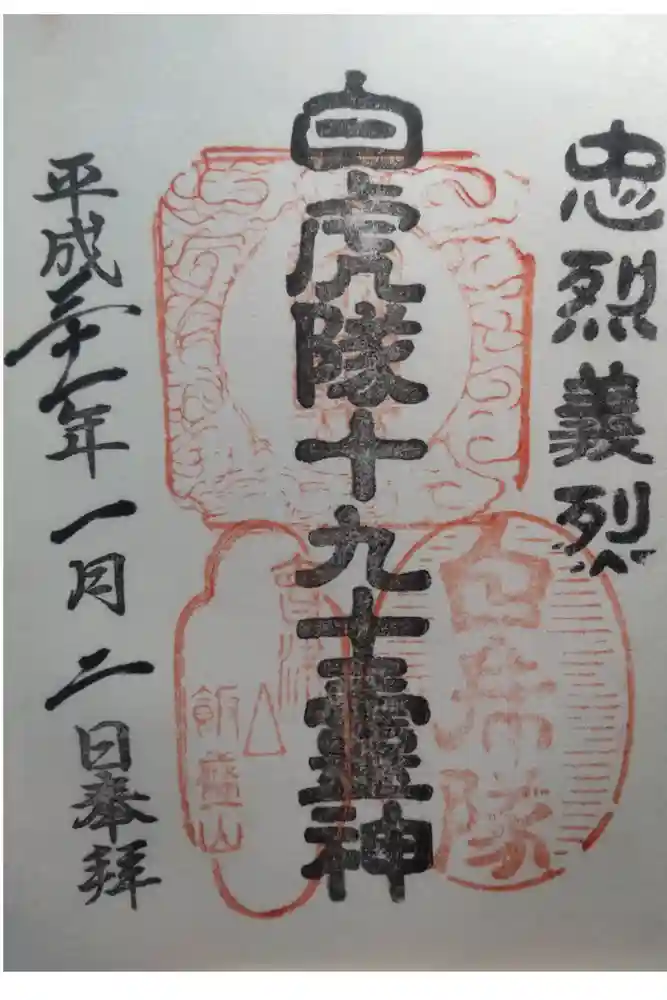 忠烈義烈
白虎隊十九士靈神
白虎隊
飯盛山
平成三十一年一月二日奉拝